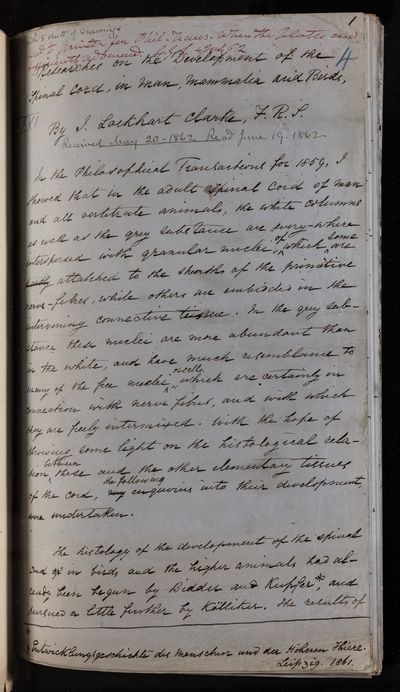 1
4
Researches on the Development of the
Spinal Cord, in Man, Mammalia and Birds,
By J. Lockhart Clarke, F.R.S.
Received May 20 - 1862 Read June 19. 1862
In the Philosophical Transactions for 1859, I
showed that in the adult spinal cord of man
and all vertebrate animals, the white columns
as well as the grey substance are every-where
interspersed with granular nuclei of which some are
attached to the sheaths of the primitive
nerve-fibres, while others are embedded in the
intervening connective tissue. In the grey sub-
stance these nuclei are more abundant than
in the white, and have much resemblance to
many of the free nuclei, or cells which are certainly in
connection with nerve fibres, and with which
they are freely intermixed. With the hope of
throwing some light on the histological rela-
tion between these and the other elementary tissues
of the cord, the following enquiries into their development
were undertaken.
The histology of the development of the spinal
cord in birds and the higher animals had al-
ready been begun by Bidder and Kupffer*, and
pursued a little further by Kölliker. The results of
Entwicklungsgeschichte des Menschen und der Höheren Thiere.
Leipzig. 1861.